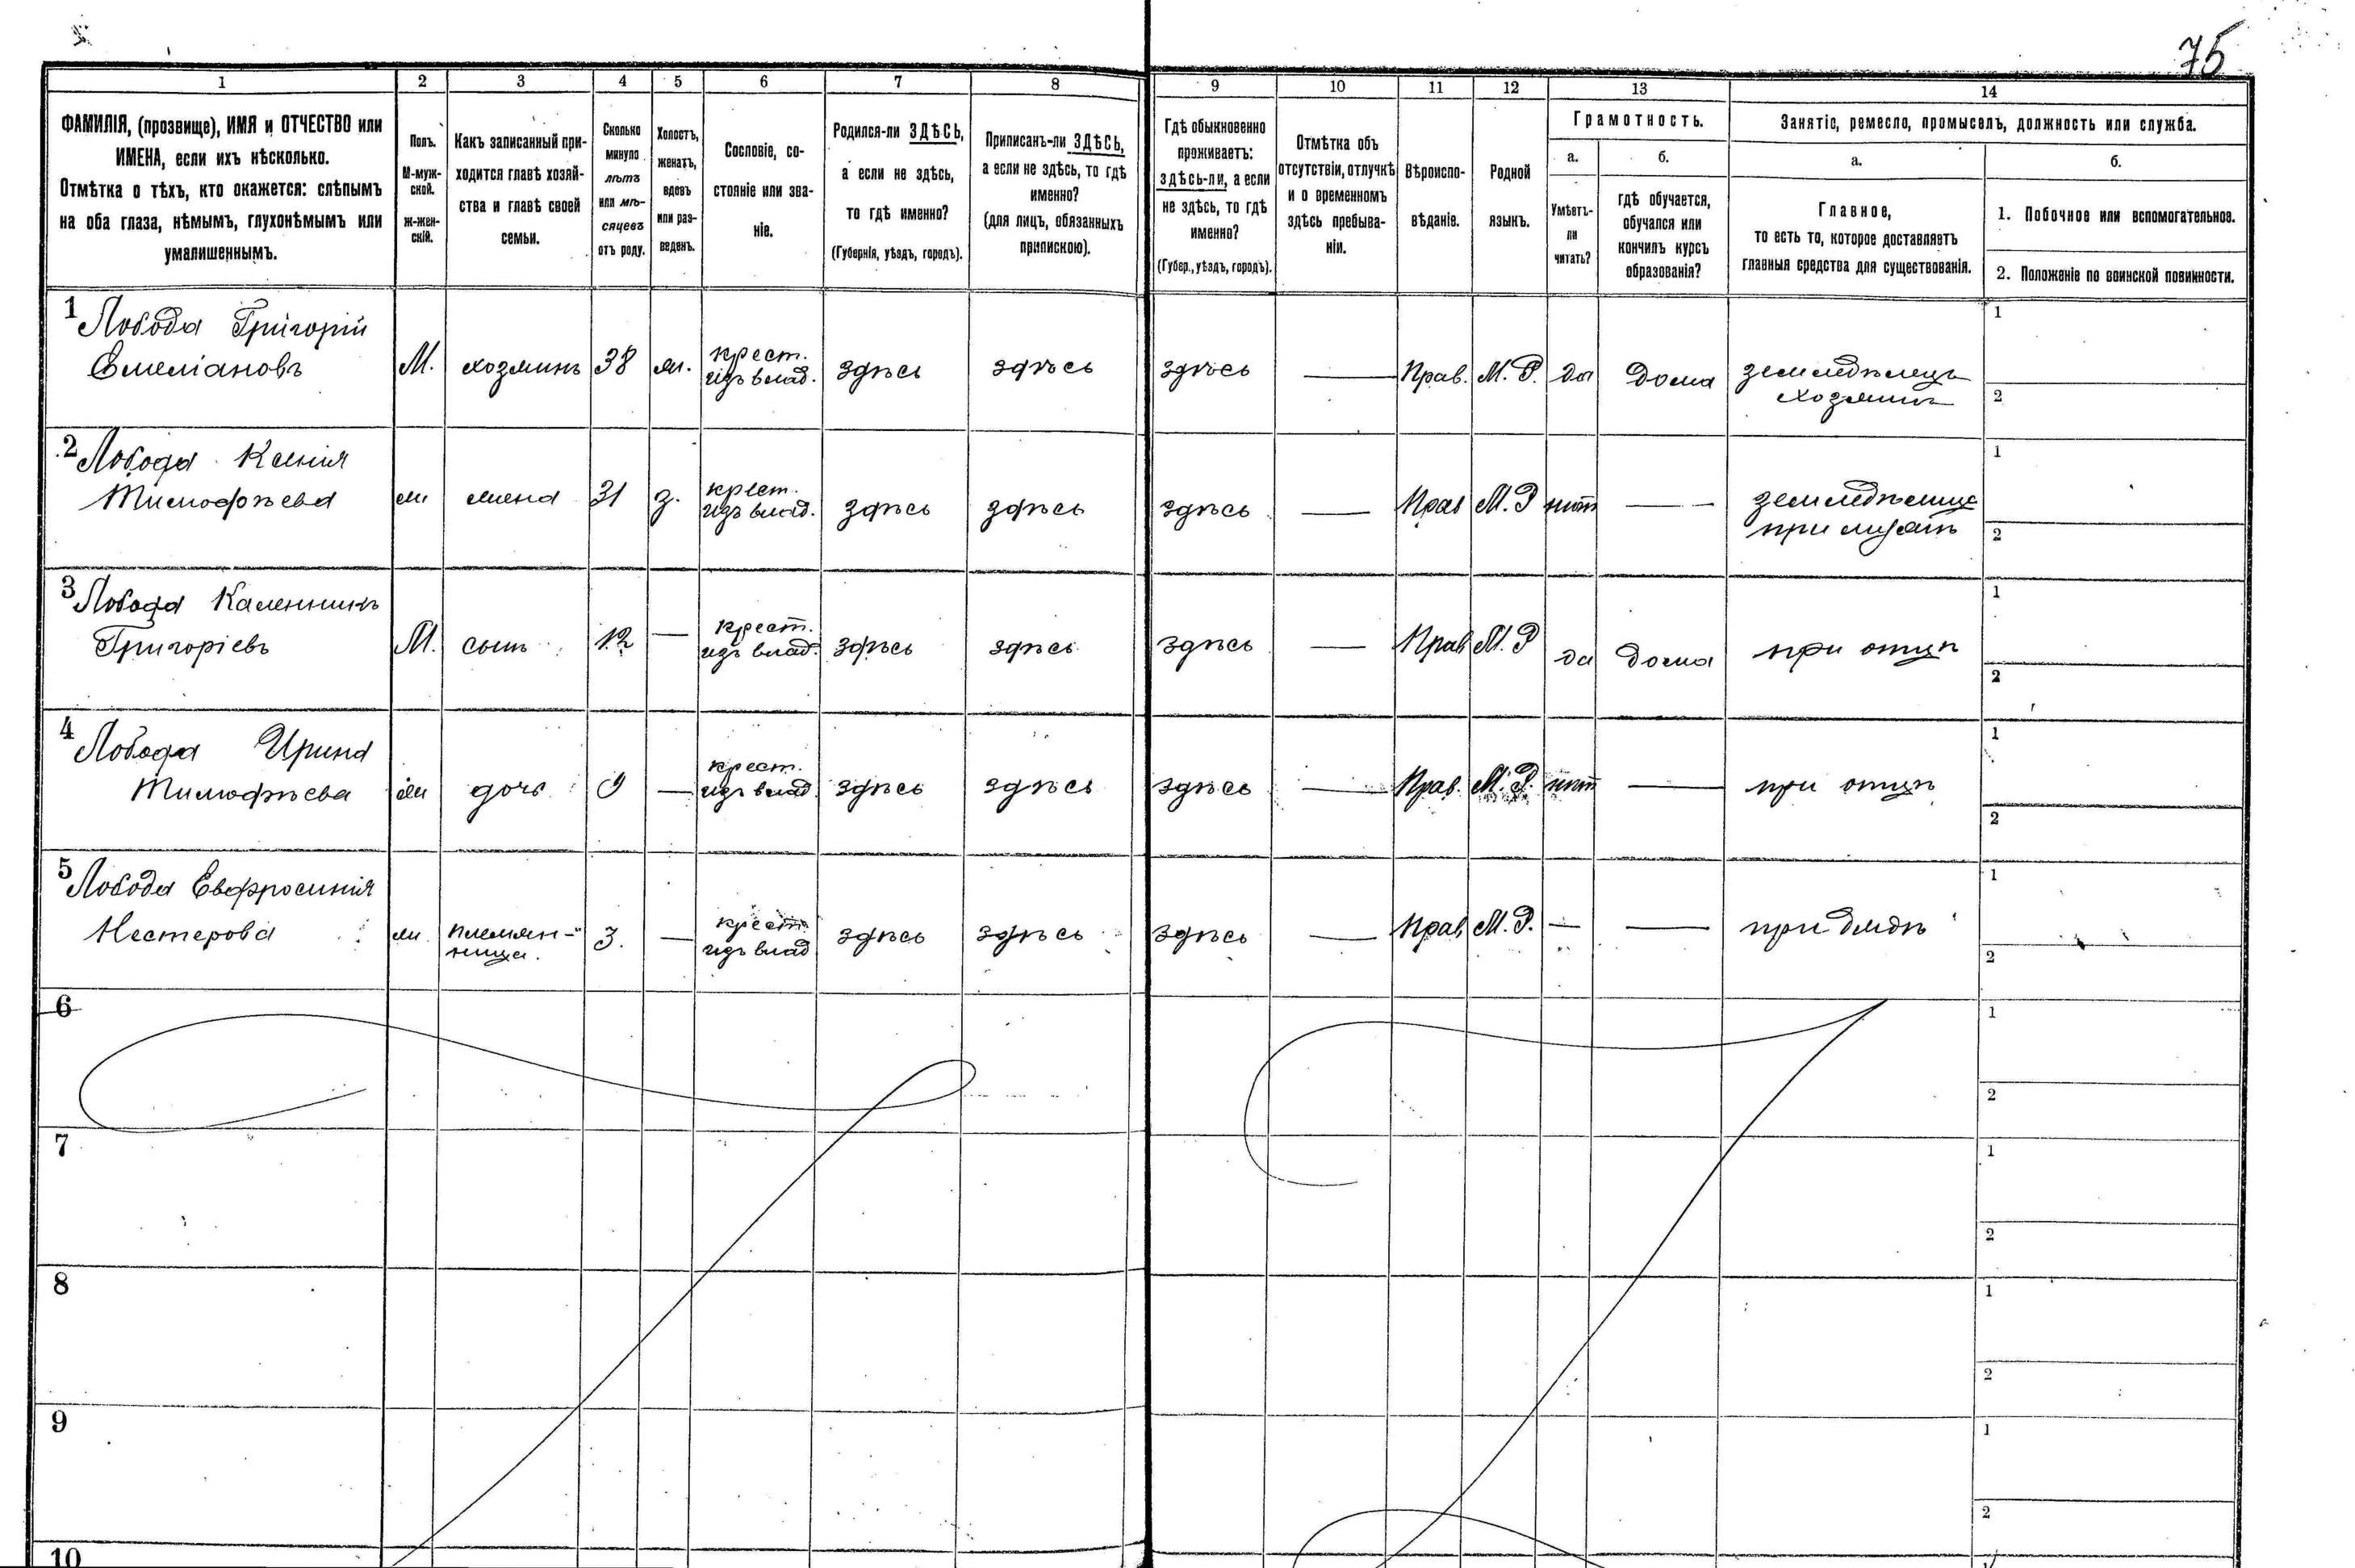 75
1 2 3 4 5 6 7 8 9 10 11 12 13 14
ФАМИЛІЯ, (прозвище), ИМЯ и ОТЧЕСТВО или
ИМЕНА, если ихъ нѣсколько.
Отмѣтка о тѣхъ, кто окажется: слѣпымъ
на оба глаза, нѣмымъ, глухонѣмымъ или
умалишеннымъ.
Полъ.
М-муж-
ской.
Ж-жен-
скій.
Какъ записанный при-
ходится главѣ хозяй-
ства и главѣ своей
семьи.
Сколько
минуло
лѣтъ
или мѣ-
сяцевъ
отъ роду.
Холостъ,
женатъ,
вдовъ
или раз-
веденъ.
Сословіе, со-
стояніе или зва-
ніе.
Родился-ли ЗДѢСЬ,
а если не здѣсь,
то гдѣ именно?
(Губернія, уѣздъ, городъ).
Приписанъ-ли ЗДѢСЬ,
а если не здѣсь, то гдѣ
именно?
(для лицъ, обязанныхъ
припискою).
Гдѣ обыкновенно
проживаетъ:
здѣсь-ли, а если
не здѣсь, то гдѣ
именно?
(Губер., уѣздъ, городъ).
Отмѣтка объ
отсутствіи, отлучкѣ
и о временномъ
здѣсь пребыва-
ніи.
Вѣроиспо-
вѣданіе.
Родной
языкъ.
Грамотность.
а.
Умѣетъ-
ли
читать?
б.
гдѣ обучается,
обучался или
кончилъ курсъ
образованія?
Занятіе, ремесло, промыселъ, должность или служба.
а.
Главное,
то есть то, которое доставляетъ
главныя средства для существованія.
б.
1. Побочное или вспомогательное.
2. Положеніе по воинской повинности.
1 Лобода Григорій
Емеліановъ
М. хозяинъ 38 ж. крест.
изъ влад. здѣсь здѣсь здѣсь — Прав. М. Р. да дома земледѣлецъ
хозяинъ
1
2
2 Лобода Ксенія
Тимофѣева
ж жена 31 з. крест.
изъ влад. здѣсь здѣсь здѣсь — Прав М. Р нѣт — земледѣлица
при мужѣ
1
2
3 Лобода Каленникъ
Григоріевъ
М. сынъ 12 — крест.
изъ влад. здѣсь здѣсь здѣсь — Прав М. Р да дома при отцѣ
1
2
4 Лобода Ирина
Тимофѣева
ж дочь — крест.
изъ влад. здѣсь здѣсь здѣсь — Прав. М. Р. нѣт — при отцѣ
1
2
5 Лобода Евфросинія
Нестерова
ж. племян-
ница. 3. — крест
изъ влад здѣсь здѣсь здѣсь — Прав М. Р. — — при дядѣ
1
2
6
1
2
7
1
2
8
1
2
9
1
2
10
1